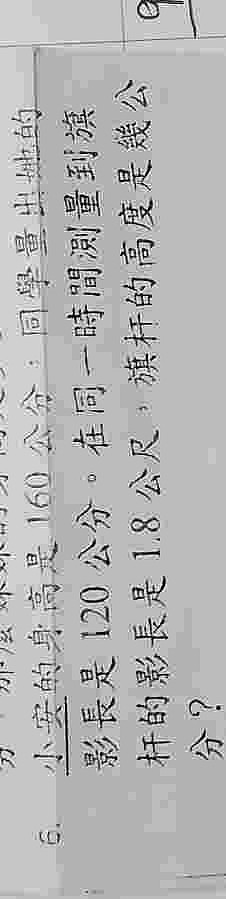 6. 小安的身高是 160 公分，同學量出她的
影長是 120 公分。在同一時間測量到旗
杆的影長是 1.8 公尺，旗杆的高度是幾公
分？